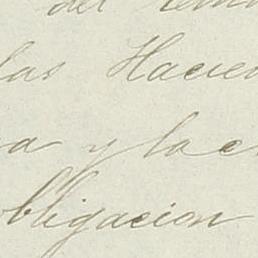 del
las Hacien
a y la c
obligacion